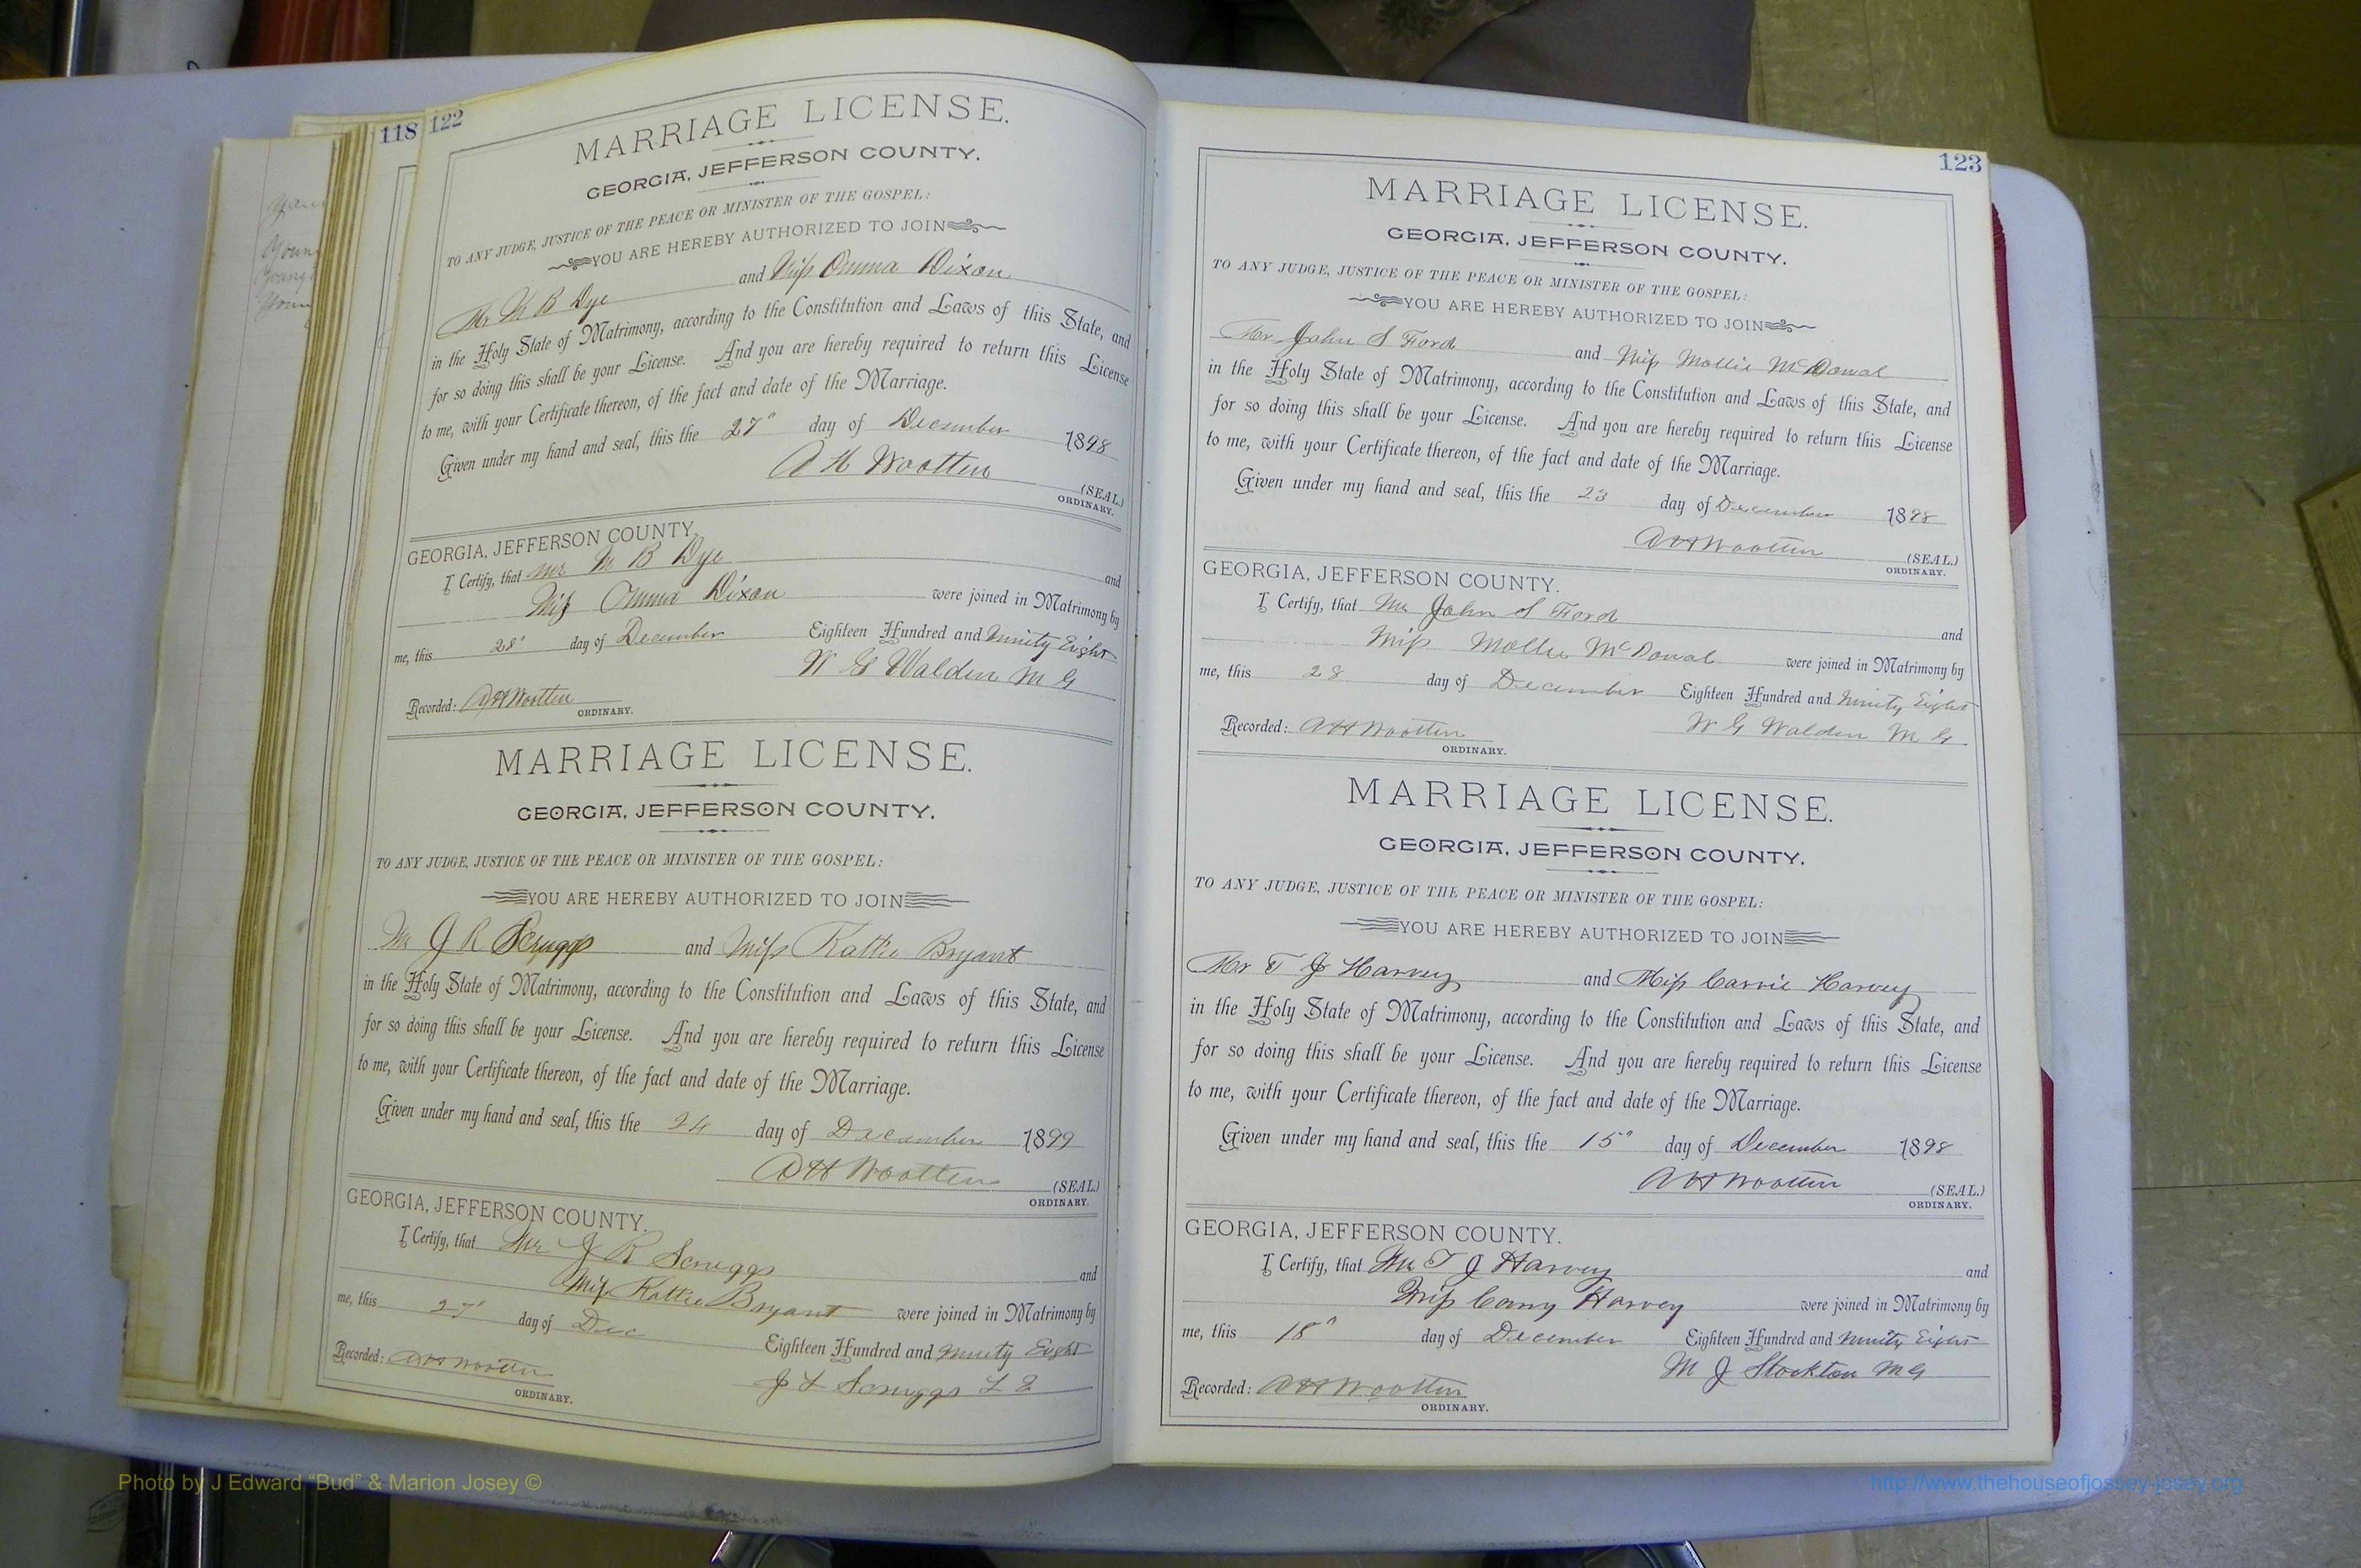 118 122
MARRIAGE LICENSE.
GEORGIA, JEFFERSON COUNTY.
TO ANY JUDGE, JUSTICE OF THE PEACE OR MINISTER OF THE GOSPEL:
YOU ARE HEREBY AUTHORIZED TO JOIN
Mr M B Dye and Miss Omma Dixon
in the Holy State of Matrimony, according to the Constitution and Laws of this State, and
for so doing this shall be your License. And you are hereby required to return this License
to me, with your Certificate thereon, of the fact and date of the Marriage.
Given under my hand and seal, this the 27" day of December 1898
A H Wootten (SEAL.)
ORDINARY.
GEORGIA, JEFFERSON COUNTY.
I Certify, that Mr M B Dye and
Miss Omma Dixon were joined in Matrimony by
me, this 28" day of December Eighteen Hundred and Ninity Eight
W G Walden M G
Recorded: A H Wootten
ORDINARY.
MARRIAGE LICENSE.
GEORGIA, JEFFERSON COUNTY.
TO ANY JUDGE, JUSTICE OF THE PEACE OR MINISTER OF THE GOSPEL:
YOU ARE HEREBY AUTHORIZED TO JOIN
Mr J R Scruggs and Miss Kattie Bryant
in the Holy State of Matrimony, according to the Constitution and Laws of this State, and
for so doing this shall be your License. And you are hereby required to return this License
to me, with your Certificate thereon, of the fact and date of the Marriage.
Given under my hand and seal, this the 24 day of December 1899
A H Wootten (SEAL.)
ORDINARY.
GEORGIA, JEFFERSON COUNTY.
I Certify, that Mr J R Scruggs and
Miss Kattie Bryant were joined in Matrimony by
me, this 27" day of Dec Eighteen Hundred and Ninity Eight
Recorded: A H Wootten J L Scruggs L E
ORDINARY.
123
MARRIAGE LICENSE.
GEORGIA, JEFFERSON COUNTY.
TO ANY JUDGE, JUSTICE OF THE PEACE OR MINISTER OF THE GOSPEL:
YOU ARE HEREBY AUTHORIZED TO JOIN
Mr John S Ford and Miss Mollie McDowal
in the Holy State of Matrimony, according to the Constitution and Laws of this State, and
for so doing this shall be your License. And you are hereby required to return this License
to me, with your Certificate thereon, of the fact and date of the Marriage.
Given under my hand and seal, this the 23 day of December 1898
A H Wootten (SEAL.)
ORDINARY.
GEORGIA, JEFFERSON COUNTY.
I Certify, that Mr John S Ford and
Miss Mollie McDowal were joined in Matrimony by
me, this 28 day of December Eighteen Hundred and Ninity Eight
Recorded: A H Wootten W G Walden M G
ORDINARY.
MARRIAGE LICENSE.
GEORGIA, JEFFERSON COUNTY.
TO ANY JUDGE, JUSTICE OF THE PEACE OR MINISTER OF THE GOSPEL:
YOU ARE HEREBY AUTHORIZED TO JOIN
Mr T J Harvey and Miss Carrie Harvey
in the Holy State of Matrimony, according to the Constitution and Laws of this State, and
for so doing this shall be your License. And you are hereby required to return this License
to me, with your Certificate thereon, of the fact and date of the Marriage.
Given under my hand and seal, this the 15" day of December 1898
A H Wootten (SEAL.)
ORDINARY.
GEORGIA, JEFFERSON COUNTY.
I Certify, that Mr T J Harvey and
Miss Carry Harvey were joined in Matrimony by
me, this 18" day of December Eighteen Hundred and Ninity Eight
M J Stockton M G
Recorded: A H Wootten
ORDINARY.
Photo by J Edward “Bud” & Marion Josey ©
http://www.thehouseofjossey-josey.org